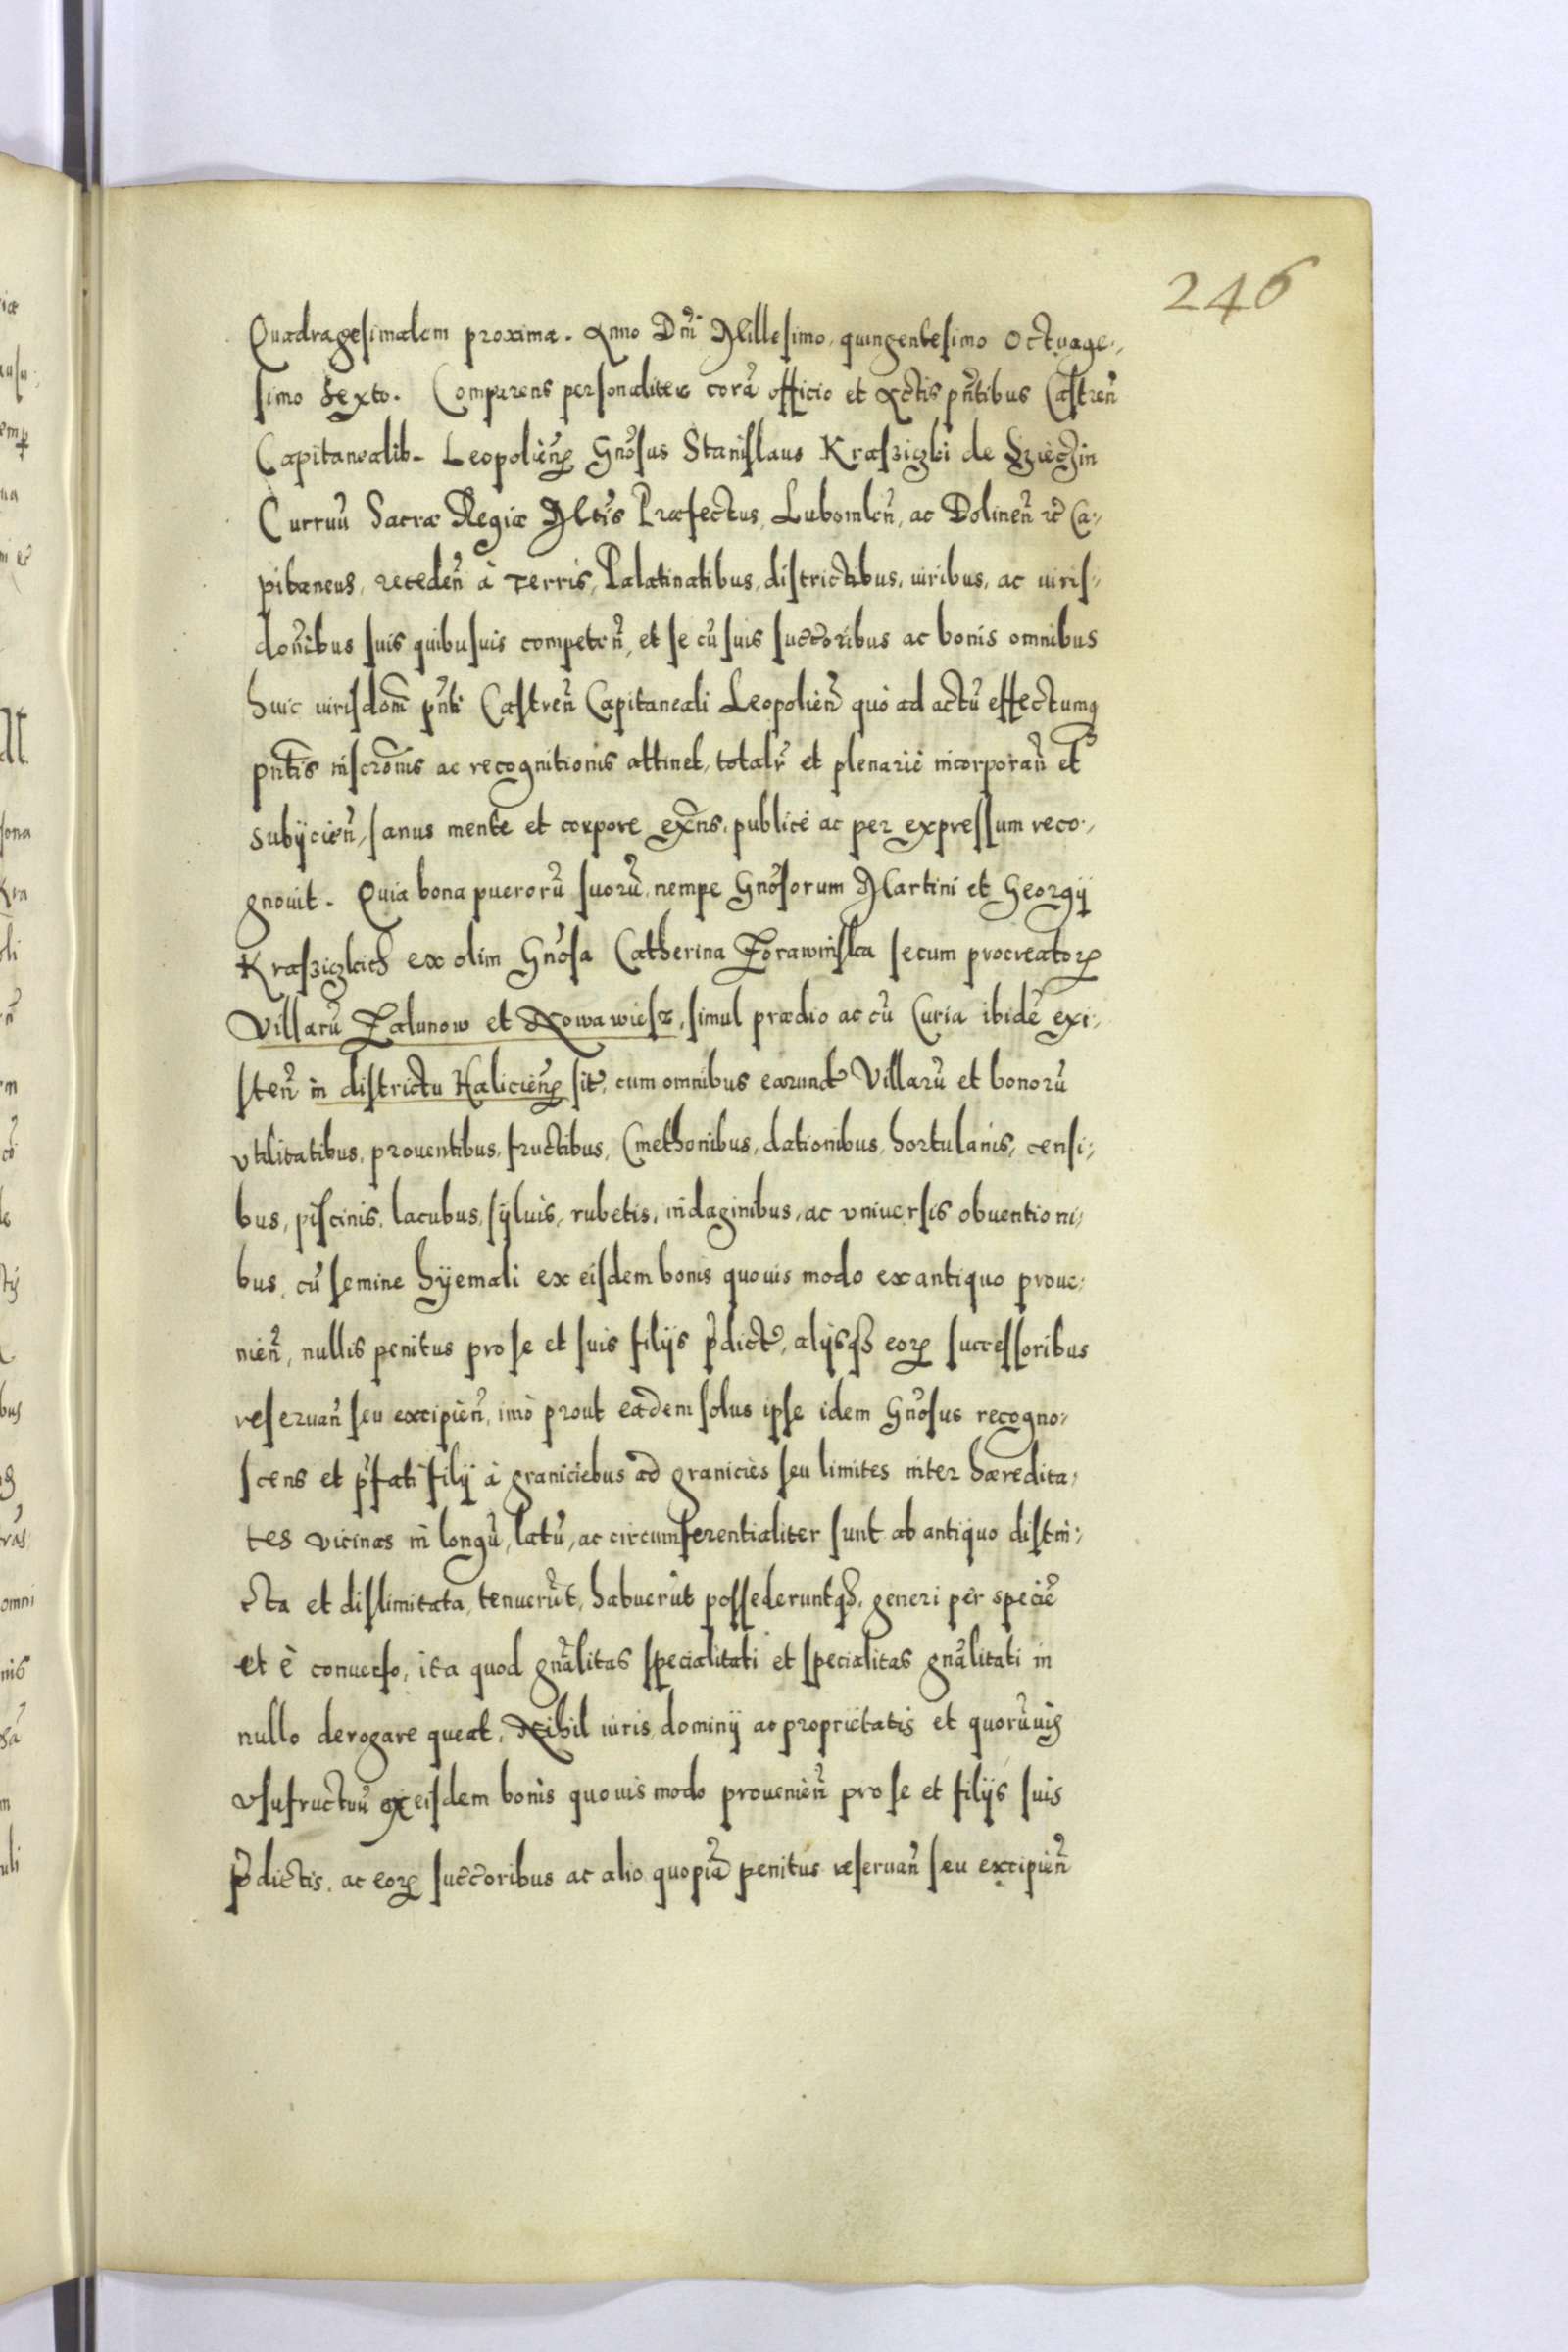 246
Quadragesimalem proxima. Anno Dnĩ Millesimo, quingentesimo octuage-,
simo sexto. Comparens personaliter corã officio et Actis pñtibus Castreñ
Capitanealib. Leopolieñ Gnõsus Stanislaus Krasziczki de Sziecżin
Curruũ Sacræ Regiæ Mtĩs Præfectus, Lubomleñ, ac Dolineñ etc̃ Ca-,
pitaneus, recedeñ à Terris, Palatinatibus, districtibus, iuribus, ac iuris-,
doñibus suis quibusuis competeñ, et se cũ suis succõribus ac bonis omnibus
huic iurisdoñi pñti Castreñ Capitaneali Leopolieñ quò ad actũ effectumq
pñtis inscrõnis ac recognitionis attinet, totalr̃ et plenariè incorporañ et
subijcieñ, sanus mente et corpore exñs, publicè ac per expressum reco-,
gnouit. Quia bona puerorũ suorũ, nempe Gnõsorum Martini et Georgij
Krasziczkich ex olim Gnõsa Catherina Zorawinska secum procreatorꝝ
Villarũ Zalunow et Nowawiesz, simul prædio ac cũ Curia ibidẽ exi-,
steñ in districtu Halicieñ sit̃, cum omnibus earund Villarũ et bonorũ
vtilitatibus, prouentibus, fructibus, Cmethonibus, dationibus, hortulanis, censi-,
bus, piscinis, lacubus, syluis, rubetis, indaginibus, ac vniuersis obuentioni-,
bus, cũ semine hyemali ex eisdem bonis quouis modo ex antiquo proue-,
nieñ, nullis penitus pro se et suis filijs p̃dict, alijsq eorꝝ successoribus
reseruañ seu excipieñ, imò prout eadem solus ipse idem Gnõsus recogno-,
scens et p̃fati filij à graniciebus ad granicies seu limites inter hæredita-,
tes vicinas in longũ, latũ, ac circumferentialiter sunt ab antiquo distin-,
cta et dislimitata, tenuerũt, habuerũt possederuntq, generi per speciẽ
et è conuerso, ita quod gnãlitas specialitati et specialitas gnãlitati in
nullo derogare queat, Nihil iuris, dominij ac proprietatis et quorũuis
vsufructuũ ex eisdem bonis quouis modo prouenieñ pro se et filijs suis
p̃dictis, ac eorꝝ succõribus ac alio quopiã penitus reseruañ seu excipieñ